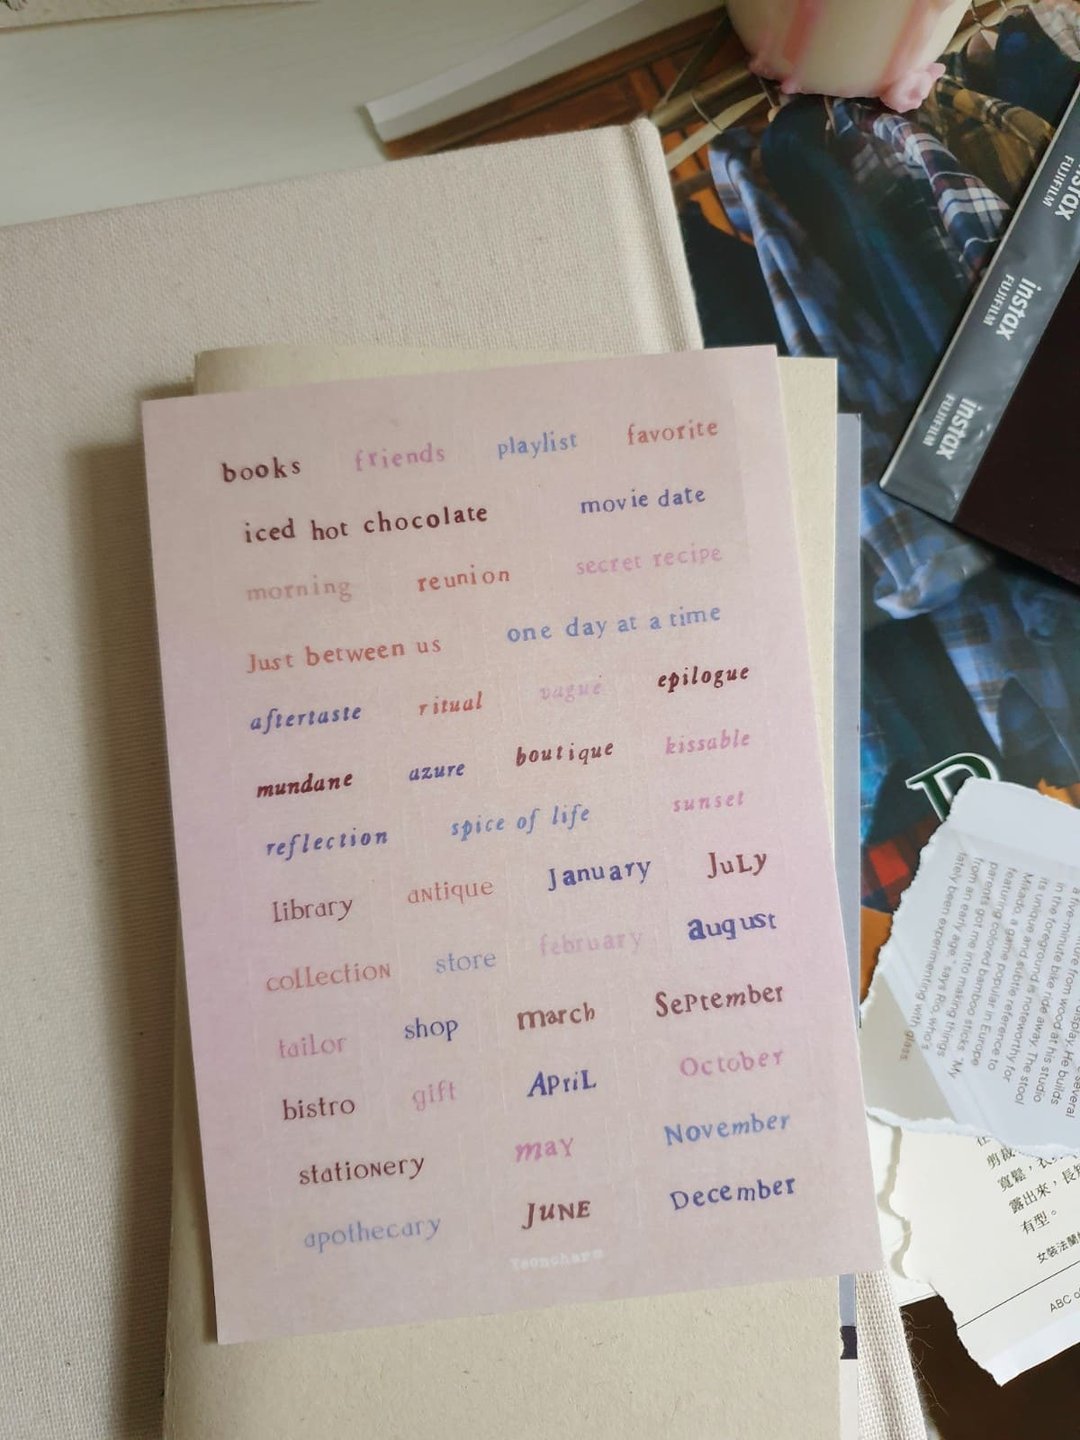 books friends playlist favorite
iced hot chocolate movie date
morning reunion secret recipe
Just between us one day at a time
aftertaste ritual vague epilogue
mundane azure boutique kissable
reflection spice of life sunset
library aNtique January JuLy
coLLectioN store february august
taiLor shop march SePtember
bistro gift APriL October
statioNery may November
apothecary JuNE December
Yeoncharm
instax
FUJIFILM
instax
FUJIFILM
instax
FUJIFILM
a five-minute
its unique and subtle reference to
in the foreground is noteworthy for
Mikado, a game popular in Europe
featuring colored bamboo sticks. "My
parents got me into making things
from an early age," says Ro, who's
lately been experimenting with glass.
ture from wood at his studio
bike ride away. The stool
display. He builds
several
剪裁
寬鬆，衣
露出來，長
有型。
女裝法蘭
ABC